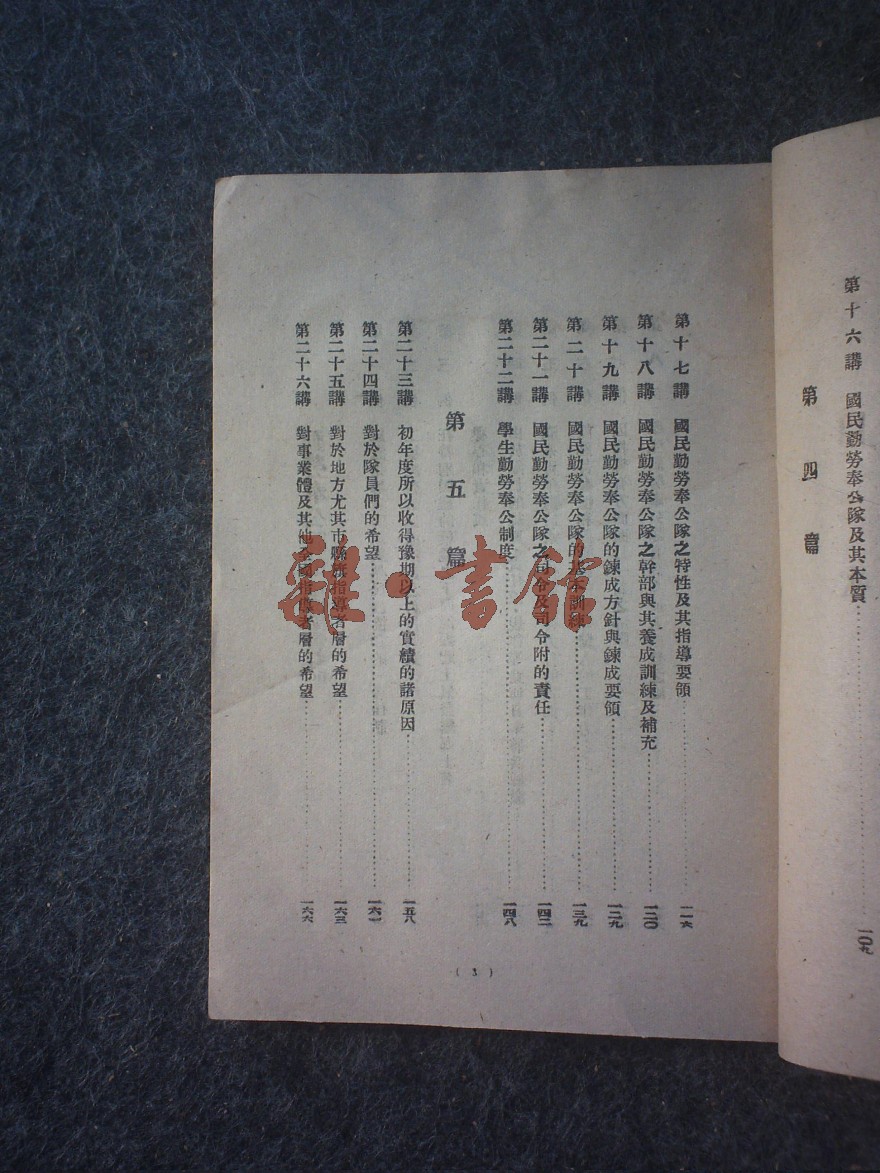 第四篇
第十六講　國民勤勞奉公隊及其本質……一〇九
第十七講　國民勤勞奉公隊之特性及其指導要領……一一六
第十八講　國民勤勞奉公隊之幹部與其養成訓練及補充……一二〇
第十九講　國民勤勞奉公隊的鍊成方針與鍊成要領……一二九
第二十講　國民勤勞奉公隊的基本訓練……一三九
第二十一講　國民勤勞奉公隊之司令及司令附的責任……一四二
第二十二講　學生勤勞奉公制度……一四八
第五篇
第二十三講　初年度所以收得豫期以上的實績的諸原因……一五八
第二十四講　對於隊員們的希望……一六一
第二十五講　對於地方尤其市縣旗指導者層的希望……一六三
第二十六講　對事業體及其他全國指導者層的希望……一六六
(3)
雜·書館